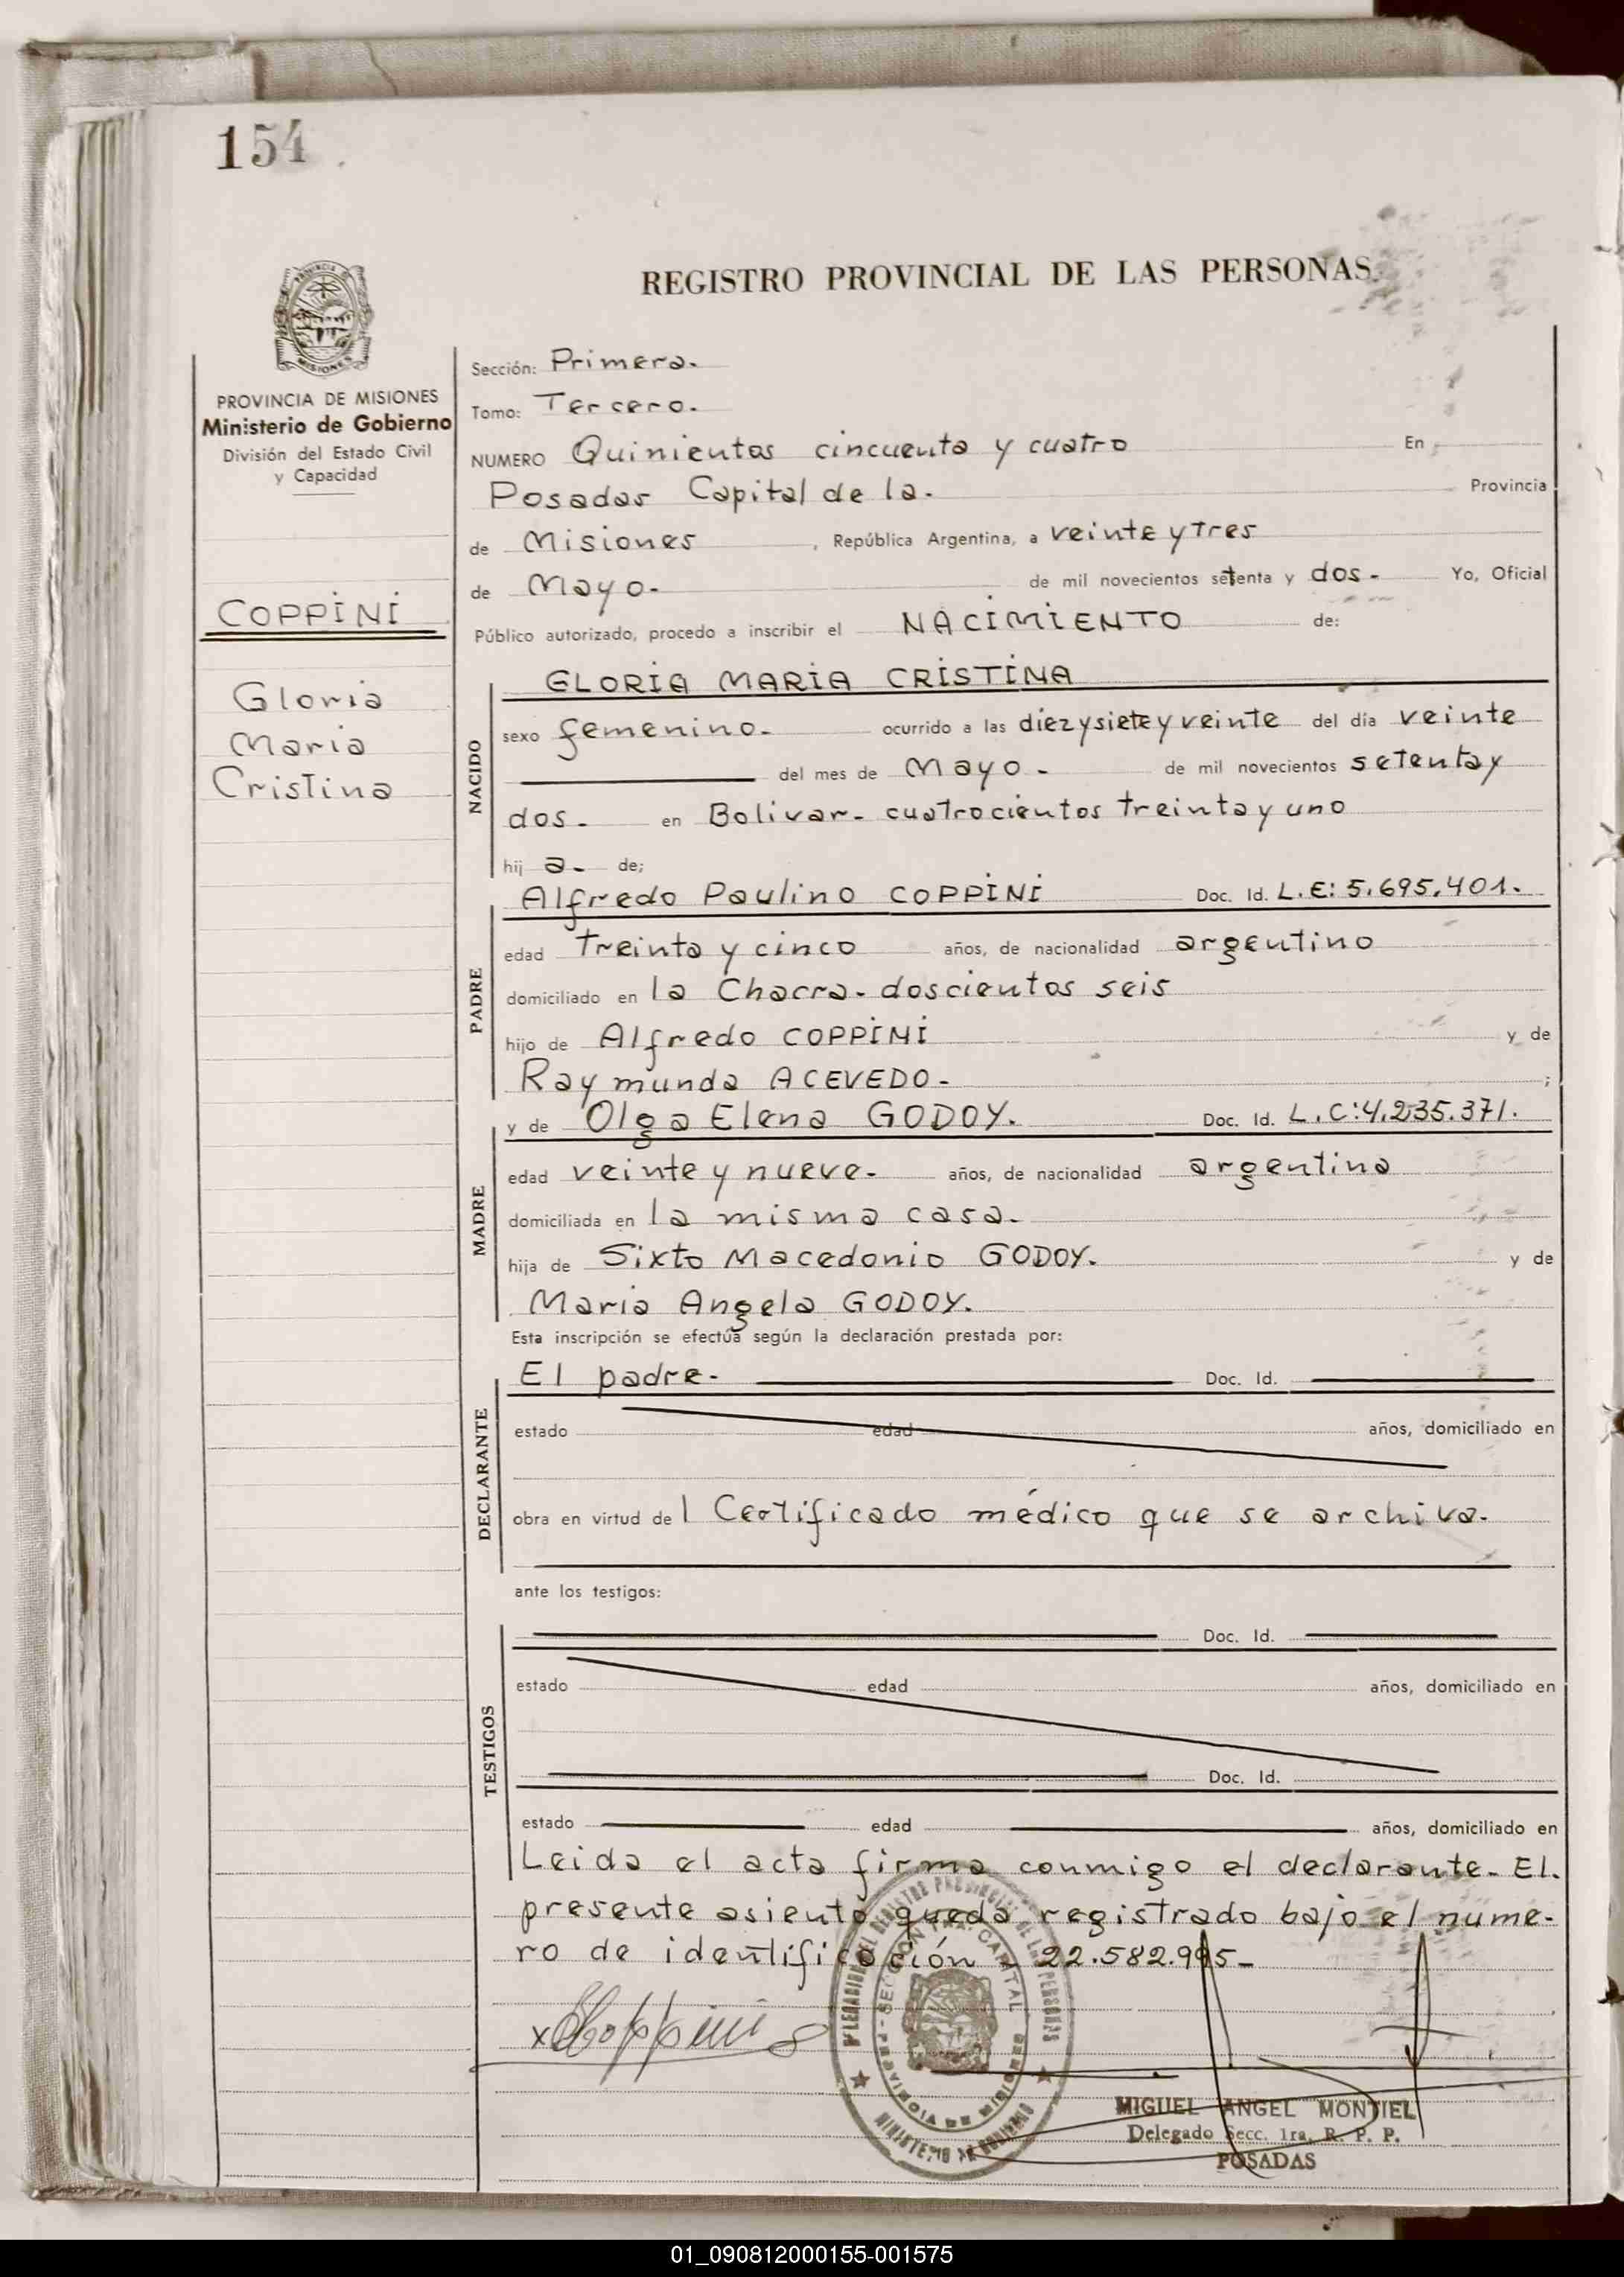 154
REGISTRO PROVINCIAL DE LAS PERSONAS
PROVINCIA DE MISIONES
Ministerio de Gobierno
División del Estado Civil
y Capacidad
COPPINI
Gloria
Maria
Cristina
Sección: Primera.
Tomo: Tercero.
NUMERO Quinientos cincuenta y cuatro En
Posadas Capital de la. Provincia
de Misiones, República Argentina, a veinte y tres
de Mayo. de mil novecientos setenta y dos. Yo, Oficial
Público autorizado, procedo a inscribir el NACIMIENTO de:
NACIDO
GLORIA MARIA CRISTINA
sexo femenino. ocurrido a las diez y siete y veinte del día veinte
del mes de Mayo. de mil novecientos setenta y
dos. en Bolivar. cuatrocientos treinta y uno
hij a. de;
PADRE
Alfredo Paulino COPPINI Doc. Id. L.E: 5.695.401.
edad treinta y cinco años, de nacionalidad argentino
domiciliado en la Chacra. doscientos seis
hijo de Alfredo COPPINI y de
Raymunda ACEVEDO. ;
MADRE
y de Olga Elena GODOY. Doc. Id. L.C: 4.235.371.
edad veinte y nueve. años, de nacionalidad argentina
domiciliada en la misma casa.
hija de Sixto Macedonio GODOY. y de
Maria Angela GODOY.
Esta inscripción se efectúa según la declaración prestada por:
DECLARANTE
El padre. Doc. Id.
estado edad años, domiciliado en
obra en virtud del Certificado médico que se archiva.
ante los testigos:
TESTIGOS
Doc. Id.
estado edad años, domiciliado en
Doc. Id.
estado edad años, domiciliado en
Leida el acta firma conmigo el declarante. El.
presente asiento queda registrado bajo el nume-
ro de identificación - 22.582.995-
x Coppini
MIGUEL ANGEL MONTIEL
Delegado Secc. 1ra. R. P. P.
POSADAS
01_090812000155-001575